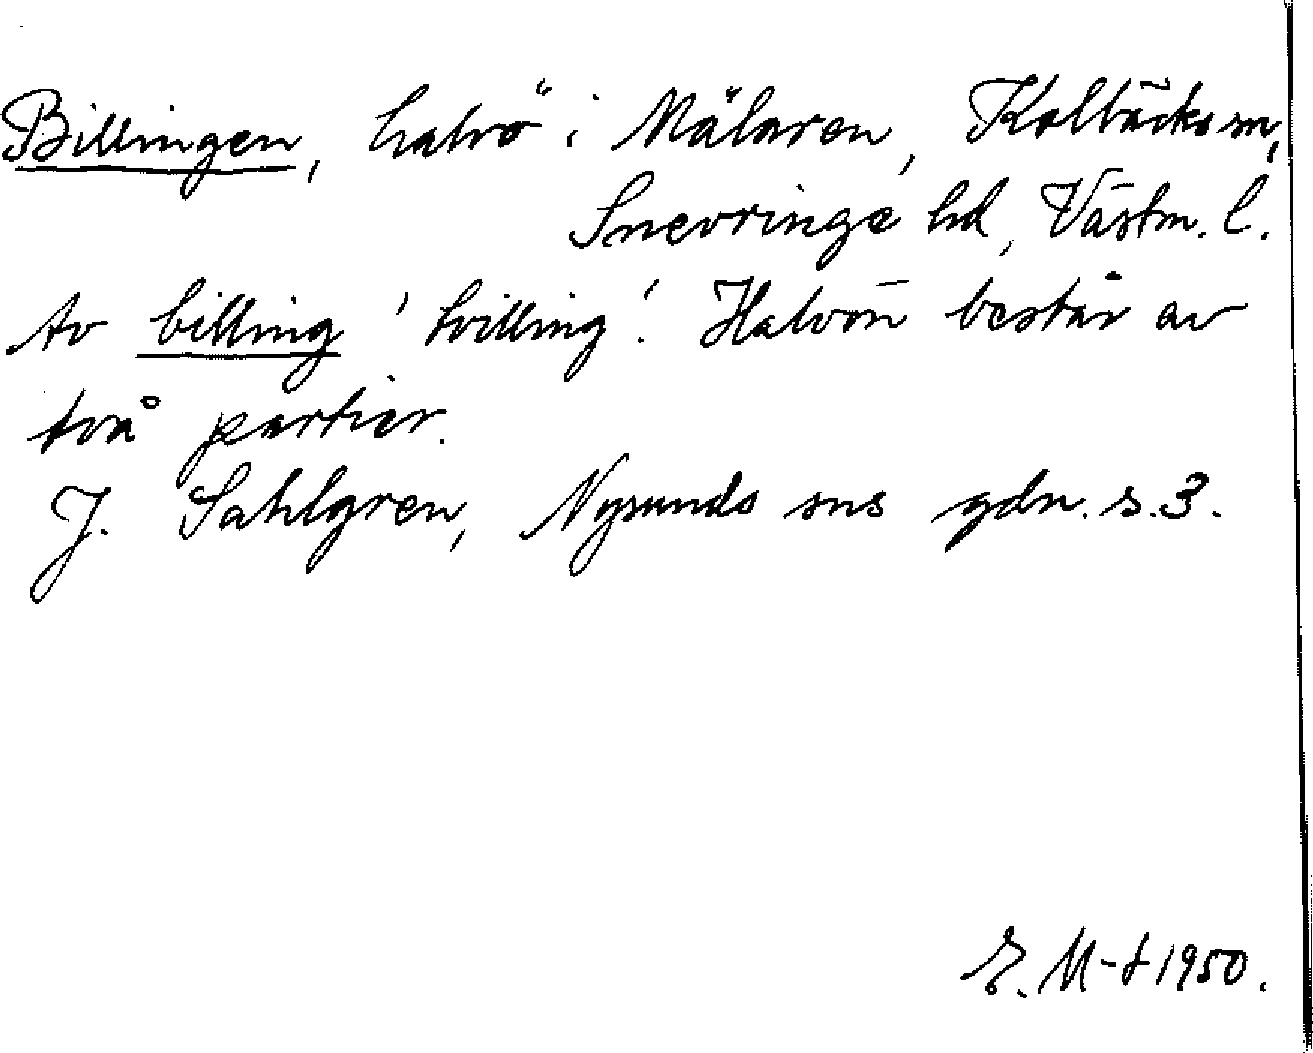 Billingen, halvö i Mälaren, Kolbäcks sn,
Snevringe hd, Västm. l.
Av billing 'tvilling'. Halvön består av
två partier.
J. Sahlgren, Nysunds sns gdn. s. 3.
E. M-t 1950.